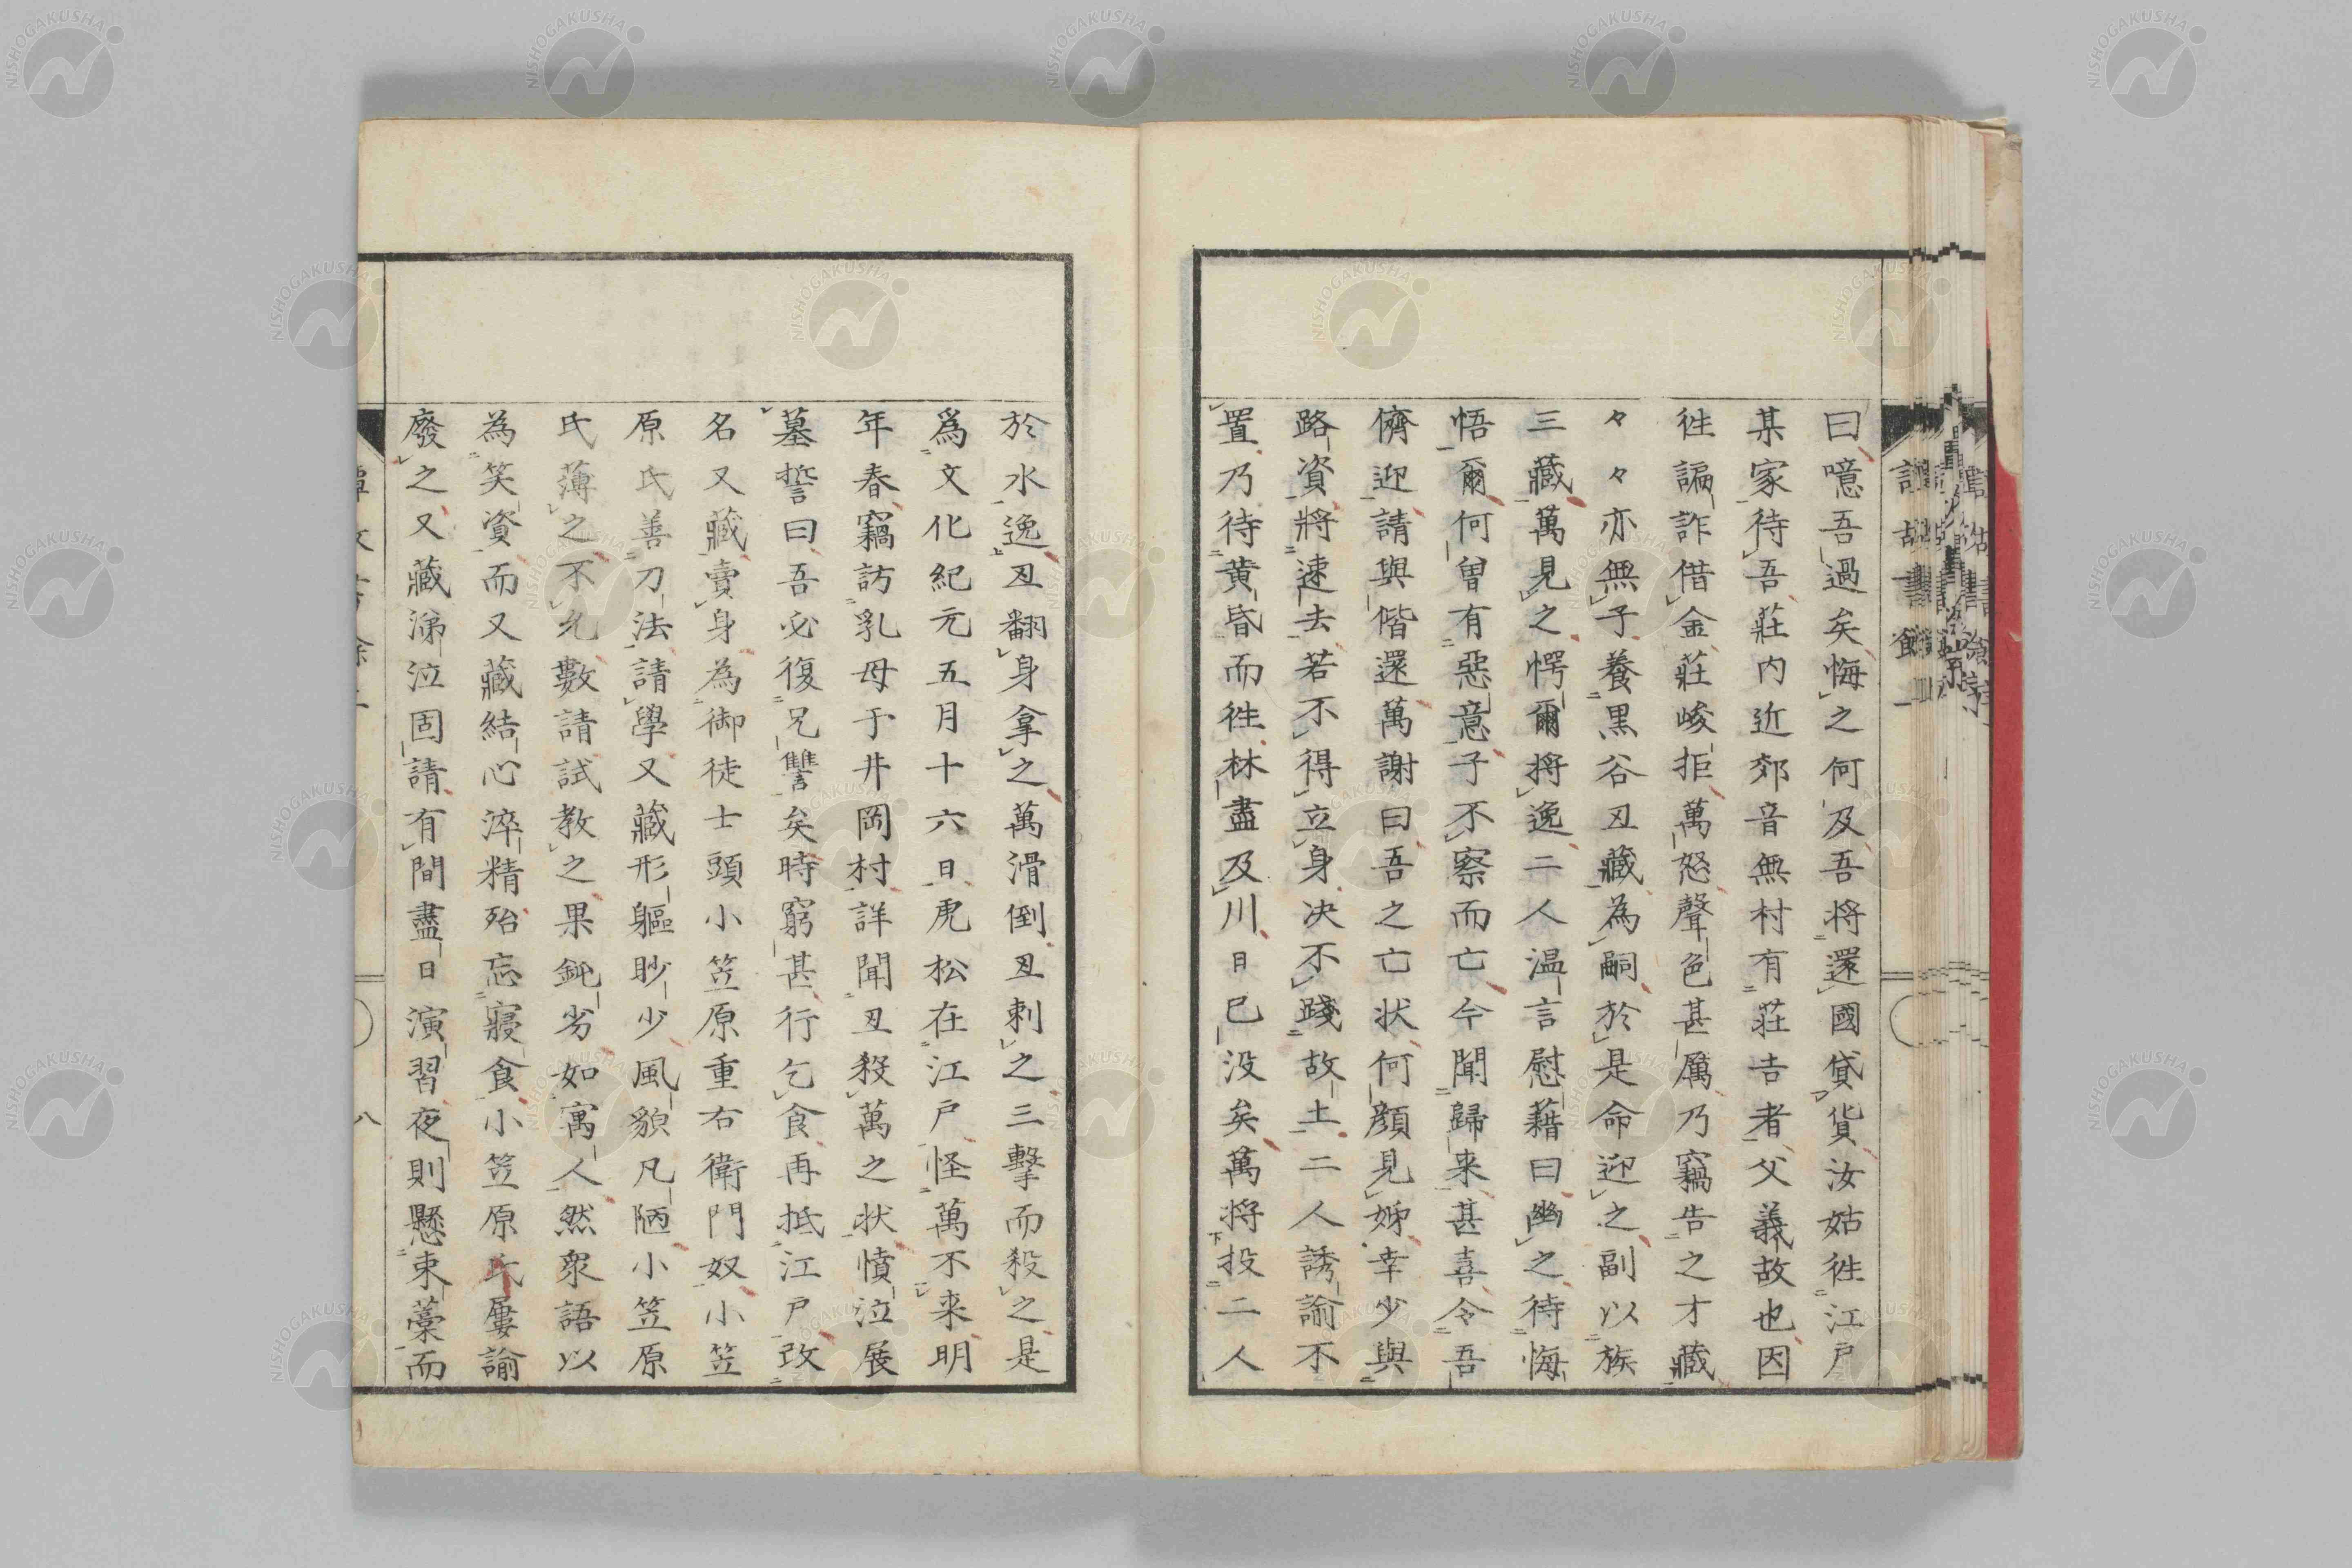 曰噫吾過矣悔之何及吾将還國貸貨汝姑徃江戸
某家待吾荘内近郊音無村有荘吉者父義故也因
徃諞詐借金荘峻拒萬怒聲色甚厲乃竊告之才藏
々々亦無子養黒谷丑藏為嗣於是命迎之副以族
三藏萬見之愕爾将逸二人温言慰藉曰幽之待悔
悟爾何曽有惡意子不察而亡今聞歸来甚喜令吾
儕迎請與偕還萬謝曰吾之亡状何顔見姊幸少與
路資將速去若不得立身决不踐故土二人誘諭不
置乃待黄昏而徃林盡及川日已没矣萬将投二人
於水逸丑翻身拿之萬滑倒丑刺之三擊而殺之是
爲文化紀元五月十六日虎松在江戸怪萬不来明
年春竊訪乳母于井岡村詳聞丑殺萬之状憤泣展
墓誓曰吾必復兄讐矣時窮甚行乞食再抵江戸改
名又藏賣身為御徒士頭小笠原重右衛門奴小笠
原氏善刀法請學又藏形軀眇少風貌凡陋小笠原
氏薄之不允數請試教之果鈍劣如寓人然衆語以
為笑資而又藏結心淬精殆忘寢食小笠原氏屢諭
廢之又藏涕泣固請有間盡日演習夜則懸束藁而
八
NISHOGAKUSHA